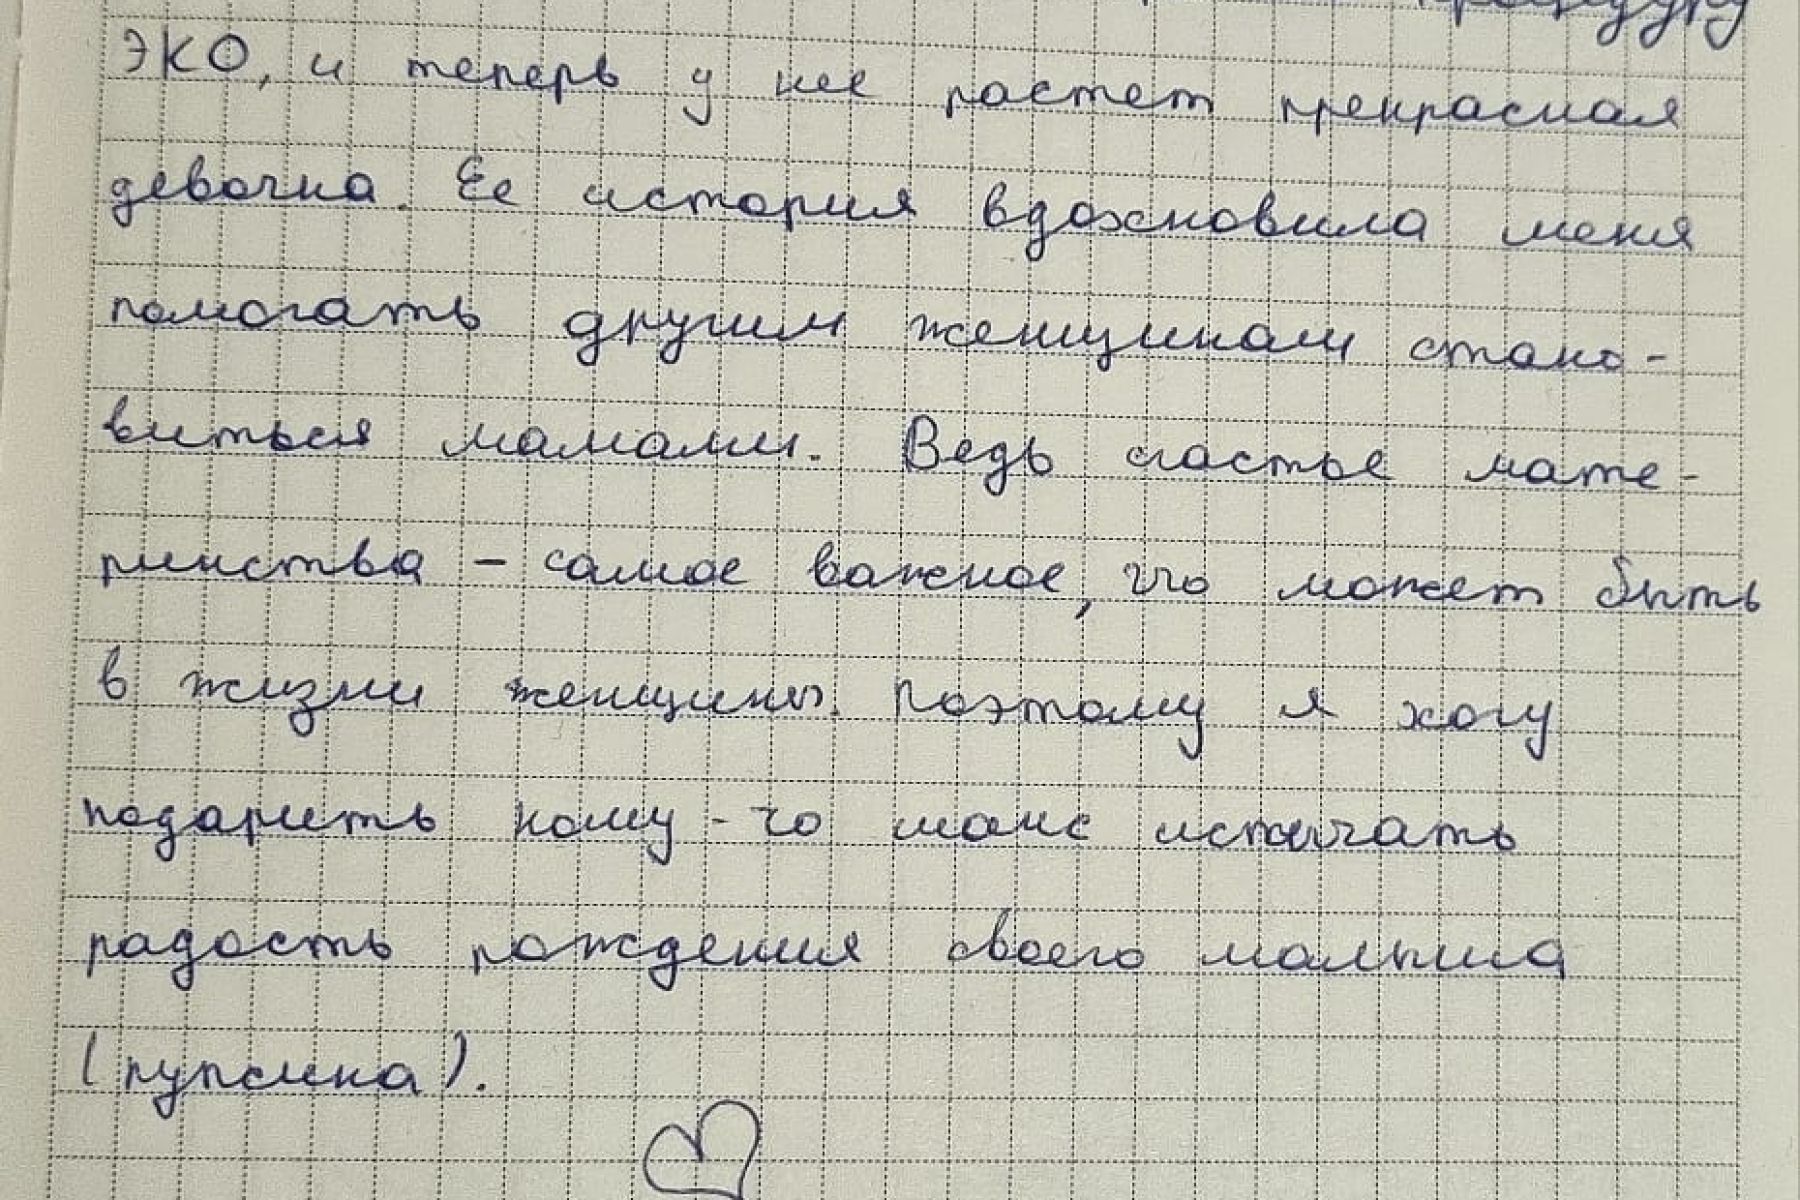 процедуру
ЭКО, и теперь у нее растет прекрасная
девочка. Ее история вдохновила меня
помогать другим женщинам стано-
виться мамами. Ведь счастье мате-
ринства - самое важное, что может быть
в жизни женщины. Поэтому я хочу
подарить кому-то шанс испытать
радость рождения своего малыша
(пупсика).